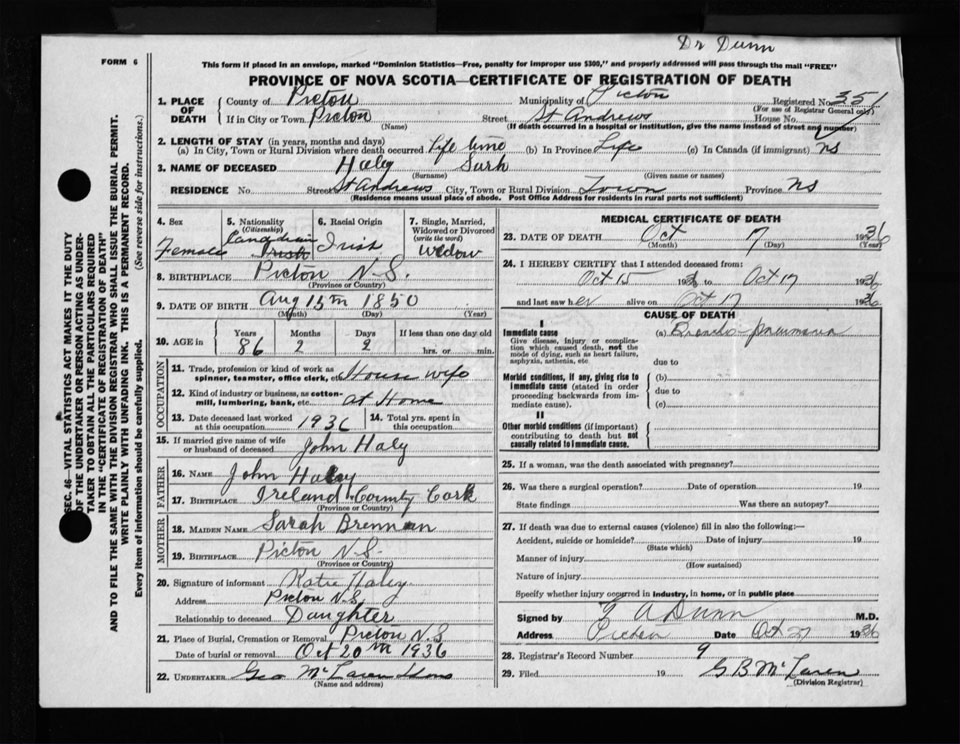 Dr Dunn
FORM 6
This form if placed in an envelope, marked "Dominion Statistics—Free, penalty for improper use $300," and properly addressed will pass through the mail "FREE"
PROVINCE OF NOVA SCOTIA—CERTIFICATE OF REGISTRATION OF DEATH
SEC. 46—VITAL STATISTICS ACT MAKES IT THE DUTY
OF THE UNDERTAKER OR PERSON ACTING AS UNDERTAKER
TO OBTAIN ALL THE PARTICULARS REQUIRED
IN THE "CERTIFICATE OF REGISTRATION OF DEATH"
AND TO FILE THE SAME WITH THE DIVISION REGISTRAR WHO SHALL ISSUE THE BURIAL PERMIT.
WRITE PLAINLY WITH UNFADING INK. THIS IS A PERMANENT RECORD.
Every item of information should be carefully supplied. (See reverse side for instructions.)
1. PLACE OF DEATH
County of Picton Municipality of Picton Registered No. 351
(For use of Registrar General only)
If in City or Town Picton Street St Andrews House No.
(Name) (If death occurred in a hospital or institution, give the name instead of street and number)
2. LENGTH OF STAY (in years, months and days)
(a) In City, Town or Rural Division where death occurred Life time (b) In Province Life (c) In Canada (if immigrant) ns
3. NAME OF DECEASED Haley Sarh
(Surname) (Given name or names)
RESIDENCE No. Street St Andrews City, Town or Rural Division Town Province NS
(Residence means usual place of abode. Post Office Address for residents in rural parts not sufficient)
4. Sex Female
5. Nationality (Citizenship) Canadian Irish
6. Racial Origin Irish
7. Single, Married, Widowed or Divorced (write the word) Widow
8. BIRTHPLACE Picton N.S.
(Province or Country)
9. DATE OF BIRTH Aug 15th 1850
(Month) (Day) (Year)
10. AGE in Years 86 Months 2 Days 2 If less than one day old hrs. or min.
OCCUPATION
11. Trade, profession or kind of work as spinner, teamster, office clerk, etc. House wife
12. Kind of industry or business, as cotton-mill, lumbering, bank, etc. at Home
13. Date deceased last worked at this occupation 1936 14. Total yrs. spent in this occupation
15. If married give name of wife or husband of deceased John Haly
FATHER
16. NAME John Haley
17. BIRTHPLACE Ireland County Cork
(Province or Country)
MOTHER
18. MAIDEN NAME Sarah Brennan
19. BIRTHPLACE Picton N.S.
(Province or Country)
20. Signature of informant Katie Haley
Address Picton N.S.
Relationship to deceased Daughter
21. Place of Burial, Cremation or Removal Picton N.S
Date of burial or removal Oct 20th 1936
22. UNDERTAKER Geo McLaren Sons
(Name and address)
MEDICAL CERTIFICATE OF DEATH
23. DATE OF DEATH Oct 17 1936
(Month) (Day) (Year)
24. I HEREBY CERTIFY that I attended deceased from:
Oct 15 1936 to Oct 17 1936
and last saw her alive on Oct 17 1936
CAUSE OF DEATH
I
Immediate cause (a) Broncho-pneumonia
Give disease, injury or complication which caused death, not the mode of dying, such as heart failure, asphyxia, asthenia, etc.
due to
Morbid conditions, if any, giving rise to immediate cause (stated in order proceeding backwards from immediate cause). (b)
due to
(c)
II
Other morbid conditions (if important) contributing to death but not causally related to immediate cause.
25. If a woman, was the death associated with pregnancy?
26. Was there a surgical operation? Date of operation 19
State findings Was there an autopsy?
27. If death was due to external causes (violence) fill in also the following:—
Accident, suicide or homicide? Date of injury 19
(State which)
Manner of injury
(How sustained)
Nature of injury
Specify whether injury occurred in industry, in home, or in public place
Signed by A Dunn M.D.
Address Picton Date Oct 27 1936
28. Registrar's Record Number 9
29. Filed 19 G B McLaren
(Division Registrar)